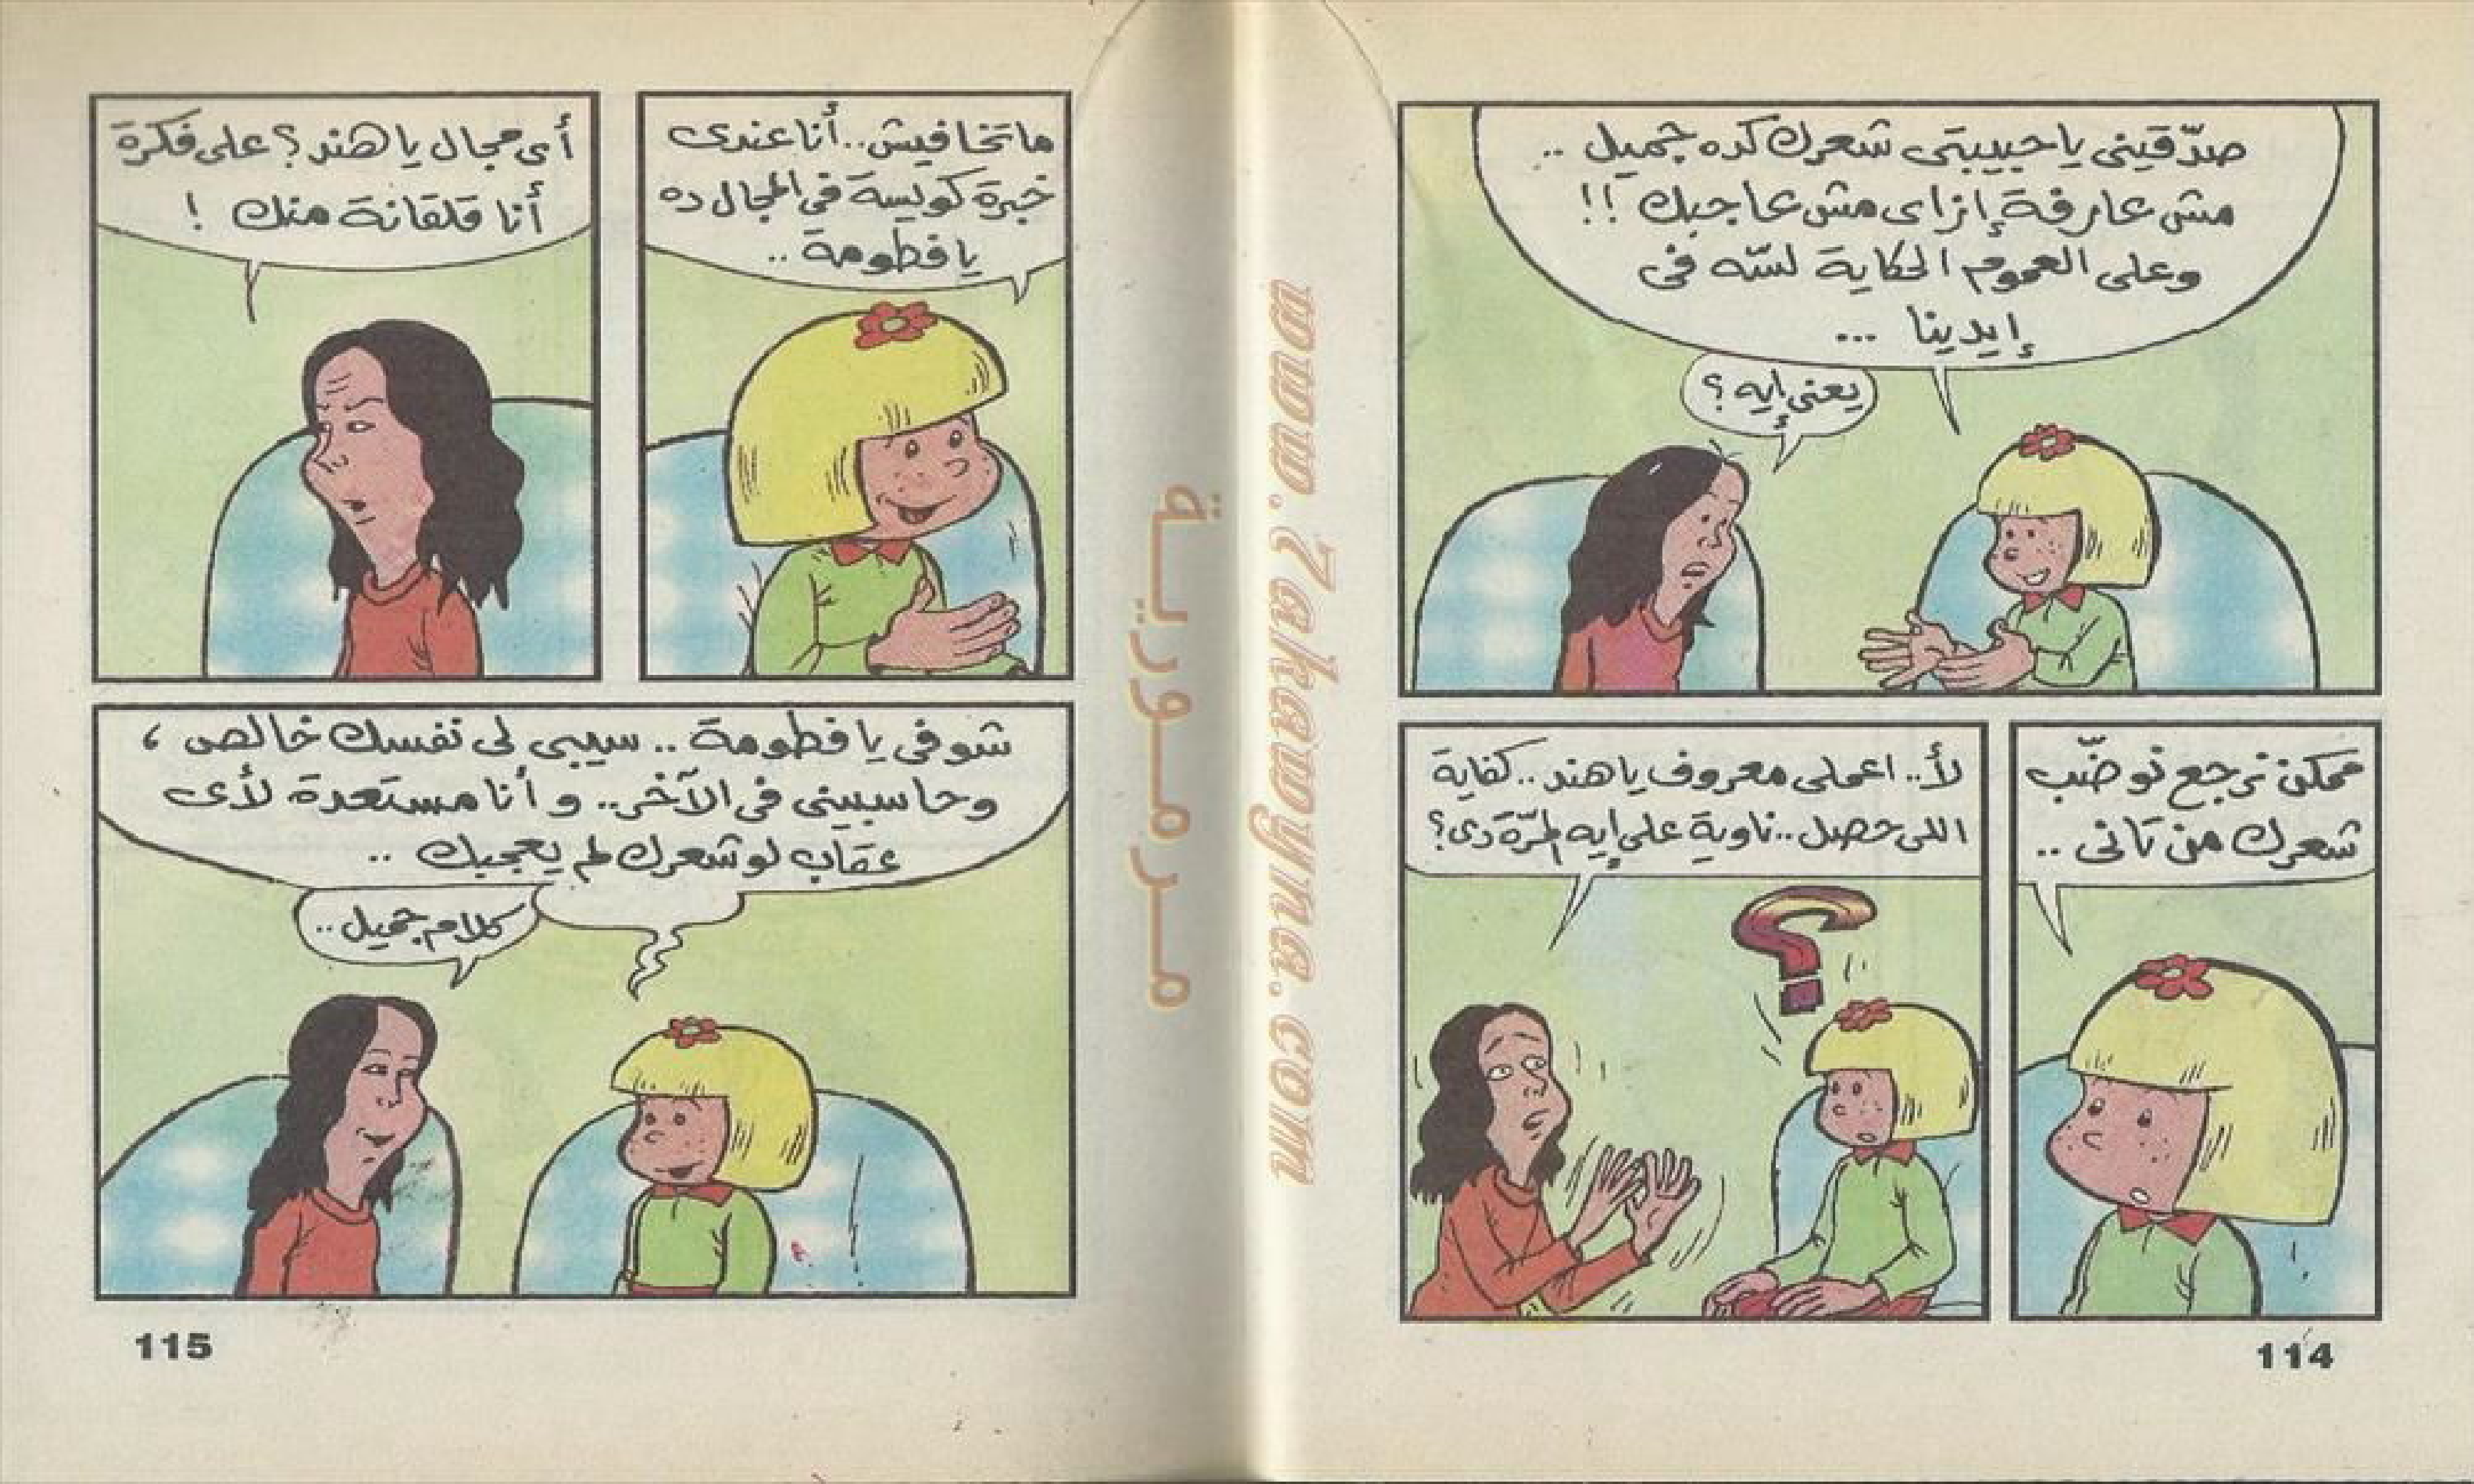 صدّقينى ياحبيبتى شعرك كده جميل ..
مش عارفة إزاى مش عاجبك !!
وعلى العموم الحكاية لسّه فى
إيدينا ...
يعنى إيه ؟
ممكن نرجع نوضّب
شعرك من تانى ..
لأ.. اعملى معروف ياهند .. كفاية
اللى حصل .. ناوية على إيه المرّة دى ؟
114
ماتخافيش .. أنا عندى
خبرة كويسة فى المجال ده
يا فطومة ..
أى مجال يا هند ؟ على فكرة
أنا قلقانة منك !
شوفى يا فطومة .. سيبى لى نفسك خالص ،
وحاسبينى فى الآخر .. و أنا مستعدة لأى
عقاب لو شعرك لم يعجبك ..
كلام جميل ..
115
مرمورية
www.7akawyna.com